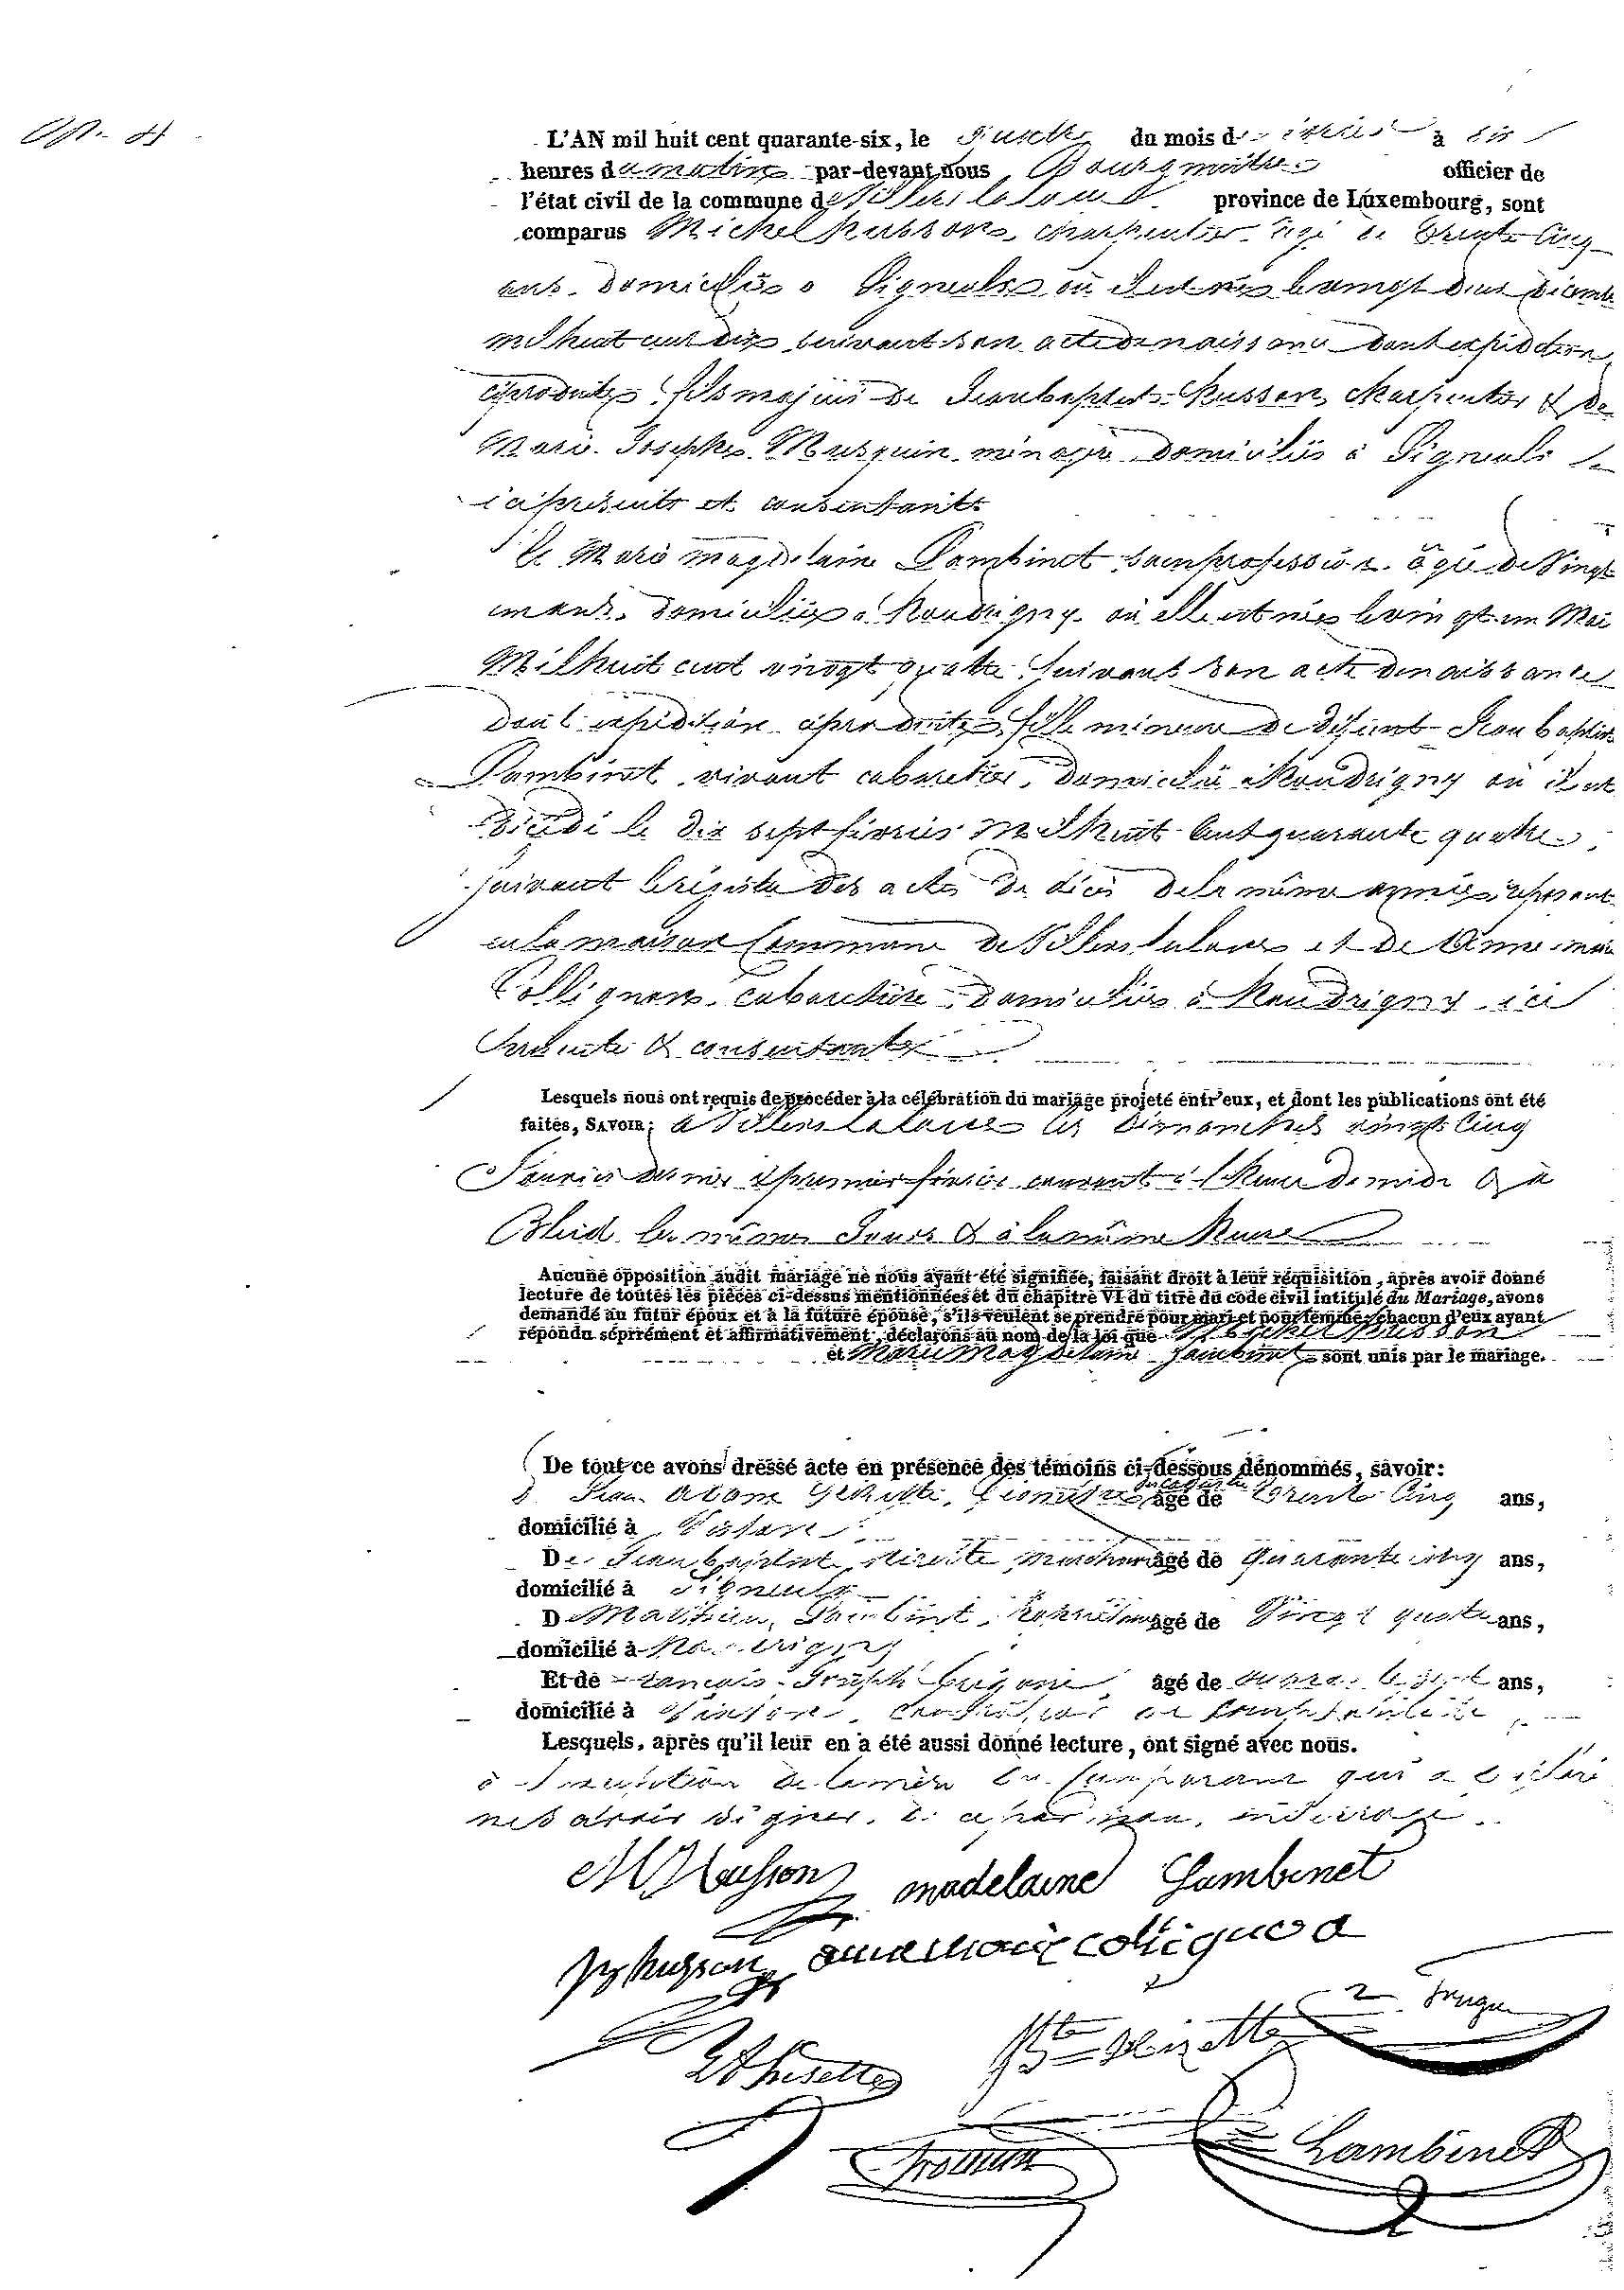 L'AN mil huit cent quarante-six, le du mois de février à dix
heures du matin par-devant nous Bourgmaitre officier de
l'état civil de la commune de Villers la loue province de Luxembourg, sont
comparus Michel husson, charpentier agé de trente Cinq
ans domicilié a Signeulx où il est né le vingt deux décembre
mil huit cent dix suivant son acte de naissance dont expédition
ci produite, fils majeur de Jean baptiste husson, charpentier & de
Marie Josephe Musquin ménagère domiciliés à Signeulx
ici présents et consentants
& Marie magdelaine Lambinet sans profession agée de Vingt
un ans domiciliée a houdrigny où elle est née le vingt un Mai
Mil huit cent vingt quatre suivant son acte de naissance
dont expédition ci produite, fille mineure de défunt Jean baptiste
Lambinet vivant cabaretier, domicilié à houdrigny où il est
décédé le dix sept février Mil huit cent quarante quatre,
suivant le régistre des actes de décès de la même année reposant
en la maison Commune de Villers la loue et de Anne marie
Collignon cabaretière domiciliée à houdrigny ici
présente & consentante
Lesquels nous ont requis de procéder à la célébration du mariage projeté entr'eux, et dont les publications ont été
faites, SAVOIR: à Villers la loue les dimanches vingt Cinq
Janvier dernier & premier février courant à l'heure de midi & à
Bleid les mêmes Jours & à la même heure
Aucune opposition audit mariage ne nous ayant été signifiée, faisant droit à leur réquisition, après avoir donné
lecture de toutes les pièces ci-dessus mentionnées et du chapitre VI du titre du code civil intitulé du Mariage, avons
demandé au futur époux et à la future épouse, s'ils veulent se prendre pour mari et pour femme, chacun d'eux ayant
répondu séprrément et affirmativement, déclarons au nom de la loi que Michel husson
et Marie Magdelaine Lambinet sont unis par le mariage.
De tout ce avons dressé acte en présence des témoins ci-dessous dénommés, savoir:
D Jean âgé de trente Cinq ans,
domicilié à
De Jean baptiste âgé de quarante cinq ans,
domicilié à Signeulx
De Mathieu Lambinet âgé de Vingt quatre ans,
domicilié à houdrigny
Et de françois Joseph âgé de ans,
domicilié à
Lesquels, après qu'il leur en a été aussi donné lecture, ont signé avec nous.
à l'exception de la mère du Comparant qui a déclaré
ne savoir signer, de ce par nous
M Husson madelaine Lambinet
husson anne marie collignon
Lambinet